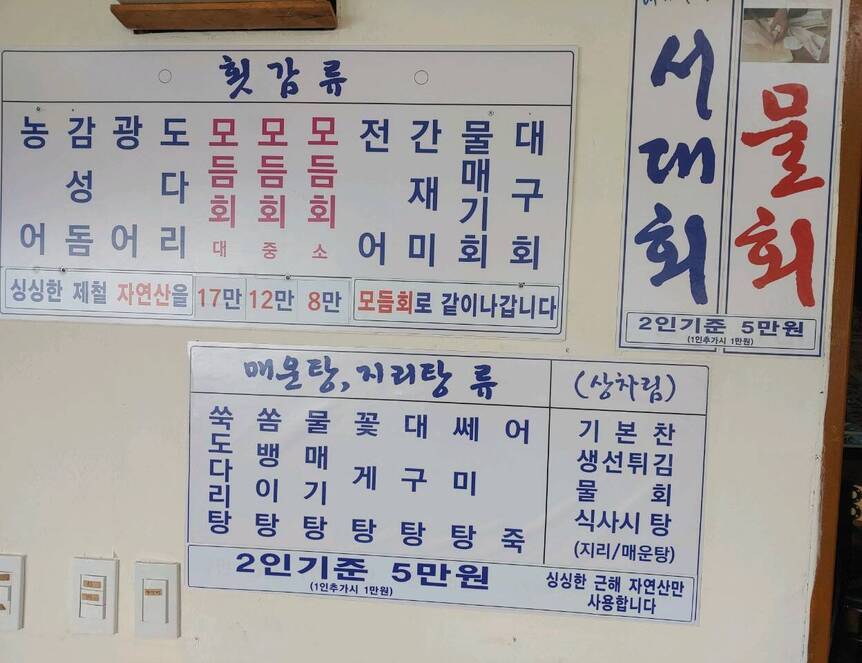 횟감류
농어
감성돔
광어
도다리
모듬회 대
모듬회 중
모듬회 소
전어
간재미
물매기회
대구회
싱싱한 제철 자연산을
17만
12만
8만
모듬회로 같이나갑니다
서대회
물회
2인기준 5만원
(1인추가시 1만원)
매운탕,지리탕 류
쑥도다리탕
쏨뱅이탕
물매기탕
꽃게탕
대구탕
쎄미탕
어죽
2인기준 5만원
(1인추가시 1만원)
(상차림)
기본찬
생선튀김
물회
식사시 탕
(지리/매운탕)
싱싱한 근해 자연산만
사용합니다